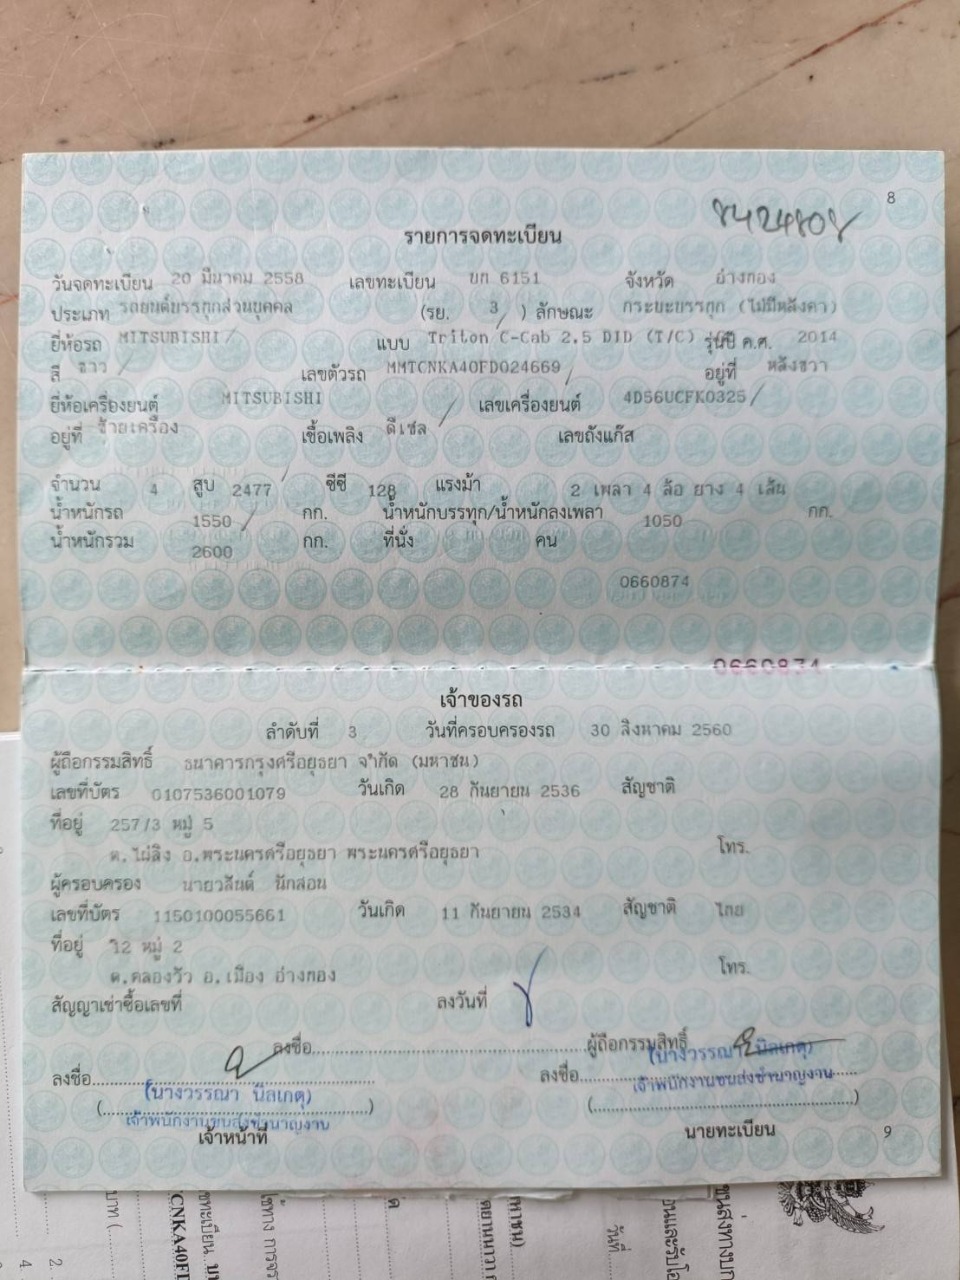 8
รายการจดทะเบียน
วันจดทะเบียน 20 มีนาคม 2558 เลขทะเบียน บก 6151 จังหวัด อ่างทอง
ประเภท รถยนต์บรรทุกส่วนบุคคล (รย. 3 ) ลักษณะ กระบะบรรทุก (ไม่มีหลังคา)
ยี่ห้อรถ MITSUBISHI แบบ Triton C-Cab 2.5 DID (T/C) รุ่นปี ค.ศ. 2014
สี ขาว เลขตัวรถ MMTCNKA40FD024669 อยู่ที่ หลังขวา
ยี่ห้อเครื่องยนต์ MITSUBISHI เลขเครื่องยนต์ 4D56UCFK0325
อยู่ที่ ซ้ายเครื่อง เชื้อเพลิง ดีเซล เลขถังแก๊ส
จำนวน 4 สูบ 2477 ซีซี 128 แรงม้า 2 เพลา 4 ล้อ ยาง 4 เส้น
น้ำหนักรถ 1550 กก. น้ำหนักบรรทุก/น้ำหนักลงเพลา 1050 กก.
น้ำหนักรวม 2600 กก. ที่นั่ง คน
0660874
เจ้าของรถ
ลำดับที่ 3 วันที่ครอบครองรถ 30 สิงหาคม 2560
ผู้ถือกรรมสิทธิ์ ธนาคารกรุงศรีอยุธยา จำกัด (มหาชน)
เลขที่บัตร 0107536001079 วันเกิด 28 กันยายน 2536 สัญชาติ
ที่อยู่ 257/3 หมู่ 5
ต.ไผ่ลิง อ.พระนครศรีอยุธยา พระนครศรีอยุธยา โทร.
ผู้ครอบครอง นายวสันต์ นึกสอน
เลขที่บัตร 1150100055661 วันเกิด 11 กันยายน 2534 สัญชาติ ไทย
ที่อยู่ 12 หมู่ 2
ต.คลองวัว อ.เมือง อ่างทอง โทร.
สัญญาเช่าซื้อเลขที่ ลงวันที่
ลงชื่อ ผู้ถือกรรมสิทธิ์
ลงชื่อ ลงชื่อ
(นางวรรณา นิลเกตุ) (นางวรรณา นิลเกตุ)
เจ้าพนักงานขนส่งชำนาญงาน เจ้าพนักงานขนส่งชำนาญงาน
เจ้าหน้าที่ นายทะเบียน
9